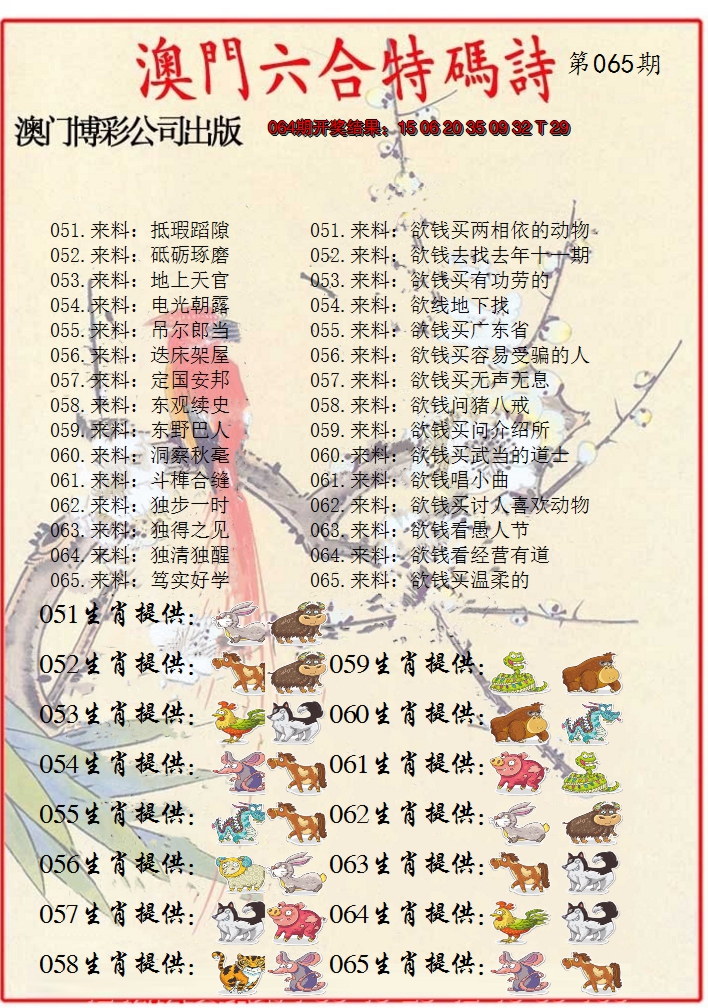 澳門六合特碼詩 第065期
澳门博彩公司出版 064期开奖结果：15 06 20 35 09 32 T 29
051.来料：抵瑕蹈隙 051.来料：欲钱买两相依的动物
052.来料：砥砺琢磨 052.来料：欲钱去找去年十一期
053.来料：地上天官 053.来料：欲钱买有功劳的
054.来料：电光朝露 054.来料：欲线地下找
055.来料：吊尔郎当 055.来料：欲钱买广东省
056.来料：迭床架屋 056.来料：欲钱买容易受骗的人
057.来料：定国安邦 057.来料：欲钱买无声无息
058.来料：东观续史 058.来料：欲钱问猪八戒
059.来料：东野巴人 059.来料：欲钱买问介绍所
060.来料：洞察秋毫 060.来料：欲钱买武当的道士
061.来料：斗榫合缝 061.来料：欲钱唱小曲
062.来料：独步一时 062.来料：欲钱买讨人喜欢动物
063.来料：独得之见 063.来料：欲钱看愚人节
064.来料：独清独醒 064.来料：欲钱看经营有道
065.来料：笃实好学 065.来料：欲钱买温柔的
051生肖提供：
052生肖提供： 059生肖提供：
053生肖提供： 060生肖提供：
054生肖提供： 061生肖提供：
055生肖提供： 062生肖提供：
056生肖提供： 063生肖提供：
057生肖提供： 064生肖提供：
058生肖提供： 065生肖提供：